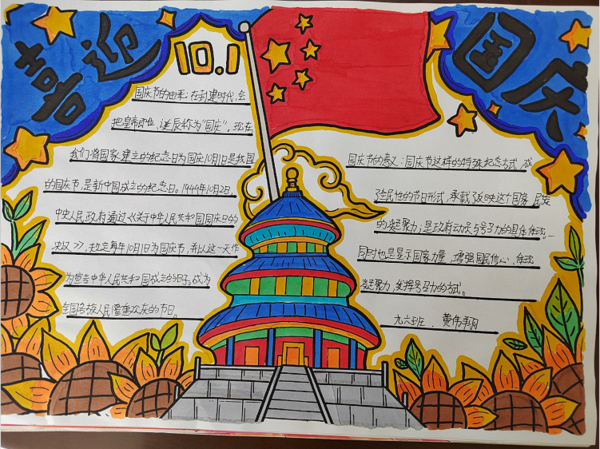 喜迎
国庆
10.1
国庆节的由来：在封建时代，会
把皇帝即位、诞辰称为“国庆”。现在
我们将国家建立的纪念日为国庆10月1日是我国
的国庆节，是新中国成立的纪念日。1949年10月2日
中央人民政府通过《关于中华人民共和国国庆日的
决议》，规定每年10月1日为国庆节，并以这一天作
为宣告中华人民共和国成立的日子，成为
全国各族人民隆重欢庆的节日。
国庆节的意义：国庆节这样的特殊纪念方式，成
为全民性的节日形式，承载了反映这个国家、民族
的凝聚力；是政府动员与号召力的具体体现；
同时也是显示国家力量、增强国民信心，体现
凝聚力，发挥号召力的方式。
九六班